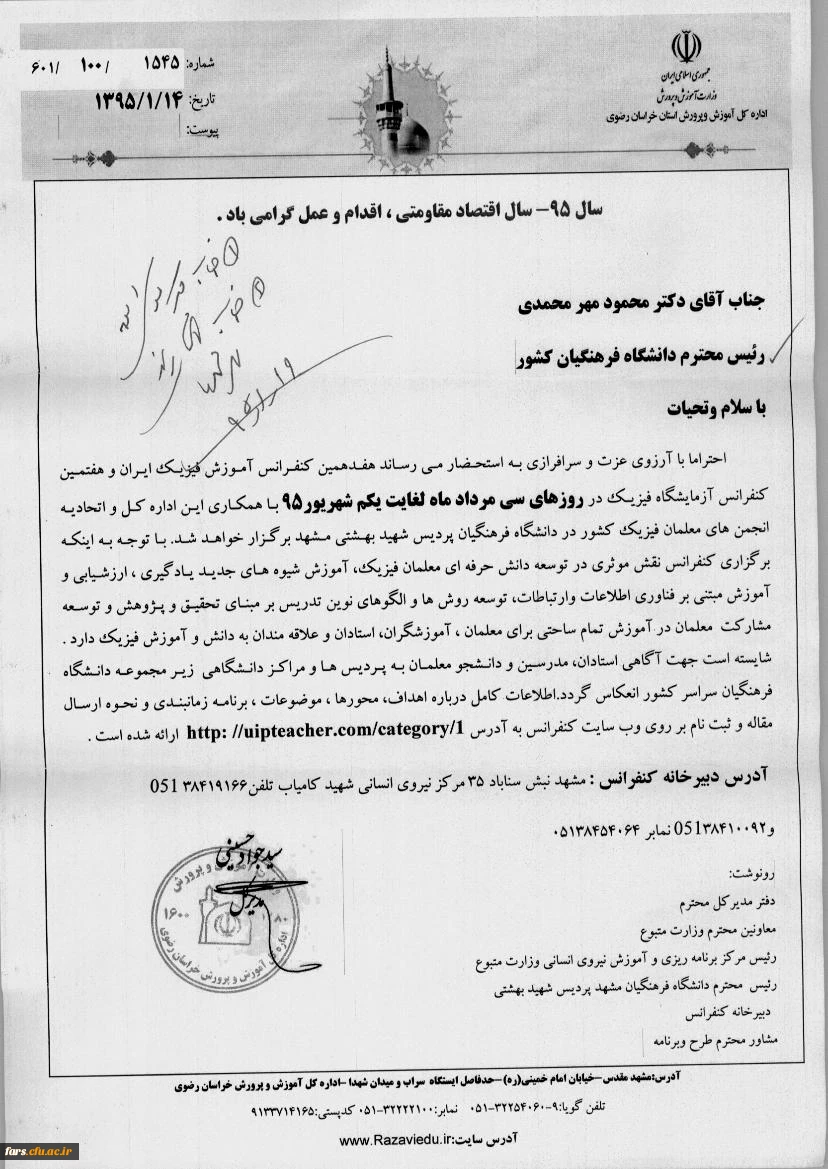 جمهوری اسلامی ایران
وزارت آموزش و پرورش
اداره کل آموزش وپرورش استان خراسان رضوی
شماره: ۱۵۴۵ /۱۰۰ /۶۰۱
تاریخ: ۱۳۹۵/۱/۱۴
پیوست:
سال ۹۵- سال اقتصاد مقاومتی ، اقدام و عمل گرامی باد .
جناب آقای دکتر محمود مهر محمدی
رئیس محترم دانشگاه فرهنگیان کشور
با سلام وتحیات
احتراما با آرزوی عزت و سرافرازی به استحضار می رساند هفدهمین کنفرانس آموزش فیزیک ایران و هفتمین
کنفرانس آزمایشگاه فیزیک در روزهای سی مرداد ماه لغایت یکم شهریور۹۵ با همکاری این اداره کل و اتحادیه
انجمن های معلمان فیزیک کشور در دانشگاه فرهنگیان پردیس شهید بهشتی مشهد برگزار خواهد شد. با توجه به اینکه
برگزاری کنفرانس نقش موثری در توسعه دانش حرفه ای معلمان فیزیک، آموزش شیوه های جدید یادگیری ، ارزشیابی و
آموزش مبتنی بر فناوری اطلاعات وارتباطات، توسعه روش ها و الگوهای نوین تدریس بر مبنای تحقیق و پژوهش و توسعه
مشارکت معلمان در آموزش تمام ساحتی برای معلمان ، آموزشگران، استادان و علاقه مندان به دانش و آموزش فیزیک دارد .
شایسته است جهت آگاهی استادان، مدرسین و دانشجو معلمان به پردیس ها و مراکز دانشگاهی زیر مجموعه دانشگاه
فرهنگیان سراسر کشور انعکاس گردد.اطلاعات کامل درباره اهداف، محورها ، موضوعات ، برنامه زمانبندی و نحوه ارسال
مقاله و ثبت نام بر روی وب سایت کنفرانس به آدرس http: //uipteacher.com/category/1 ارائه شده است .
آدرس دبیرخانه کنفرانس : مشهد نبش سناباد ۳۵ مرکز نیروی انسانی شهید کامیاب تلفن۳۸۴۱۹۱۶۶ 051
و۰۹۲ 051۳۸۴۱۰ نمابر ۰۵۱۳۸۴۵۴۰۶۴
سید جواد حسینی
مدیرکل
اداره کل آموزش و پرورش خراسان رضوی
رونوشت:
دفتر مدیرکل محترم
معاونین محترم وزارت متبوع
رئیس مرکز برنامه ریزی و آموزش نیروی انسانی وزارت متبوع
رئیس محترم دانشگاه فرهنگیان مشهد پردیس شهید بهشتی
دبیرخانه کنفرانس
مشاور محترم طرح وبرنامه
آدرس:مشهد مقدس-خیابان امام خمینی(ره) -حدفاصل ایستگاه سراب و میدان شهدا -اداره کل آموزش و پرورش خراسان رضوی
تلفن گویا:۹-۳۲۲۵۴۰۶۰-۰۵۱ نمابر:۳۲۲۲۲۱۰۰-۰۵۱ کدپستی:۹۱۳۳۷۱۴۱۶۵
آدرس سایت:www.Razaviedu.ir
fars.cfu.ac.ir